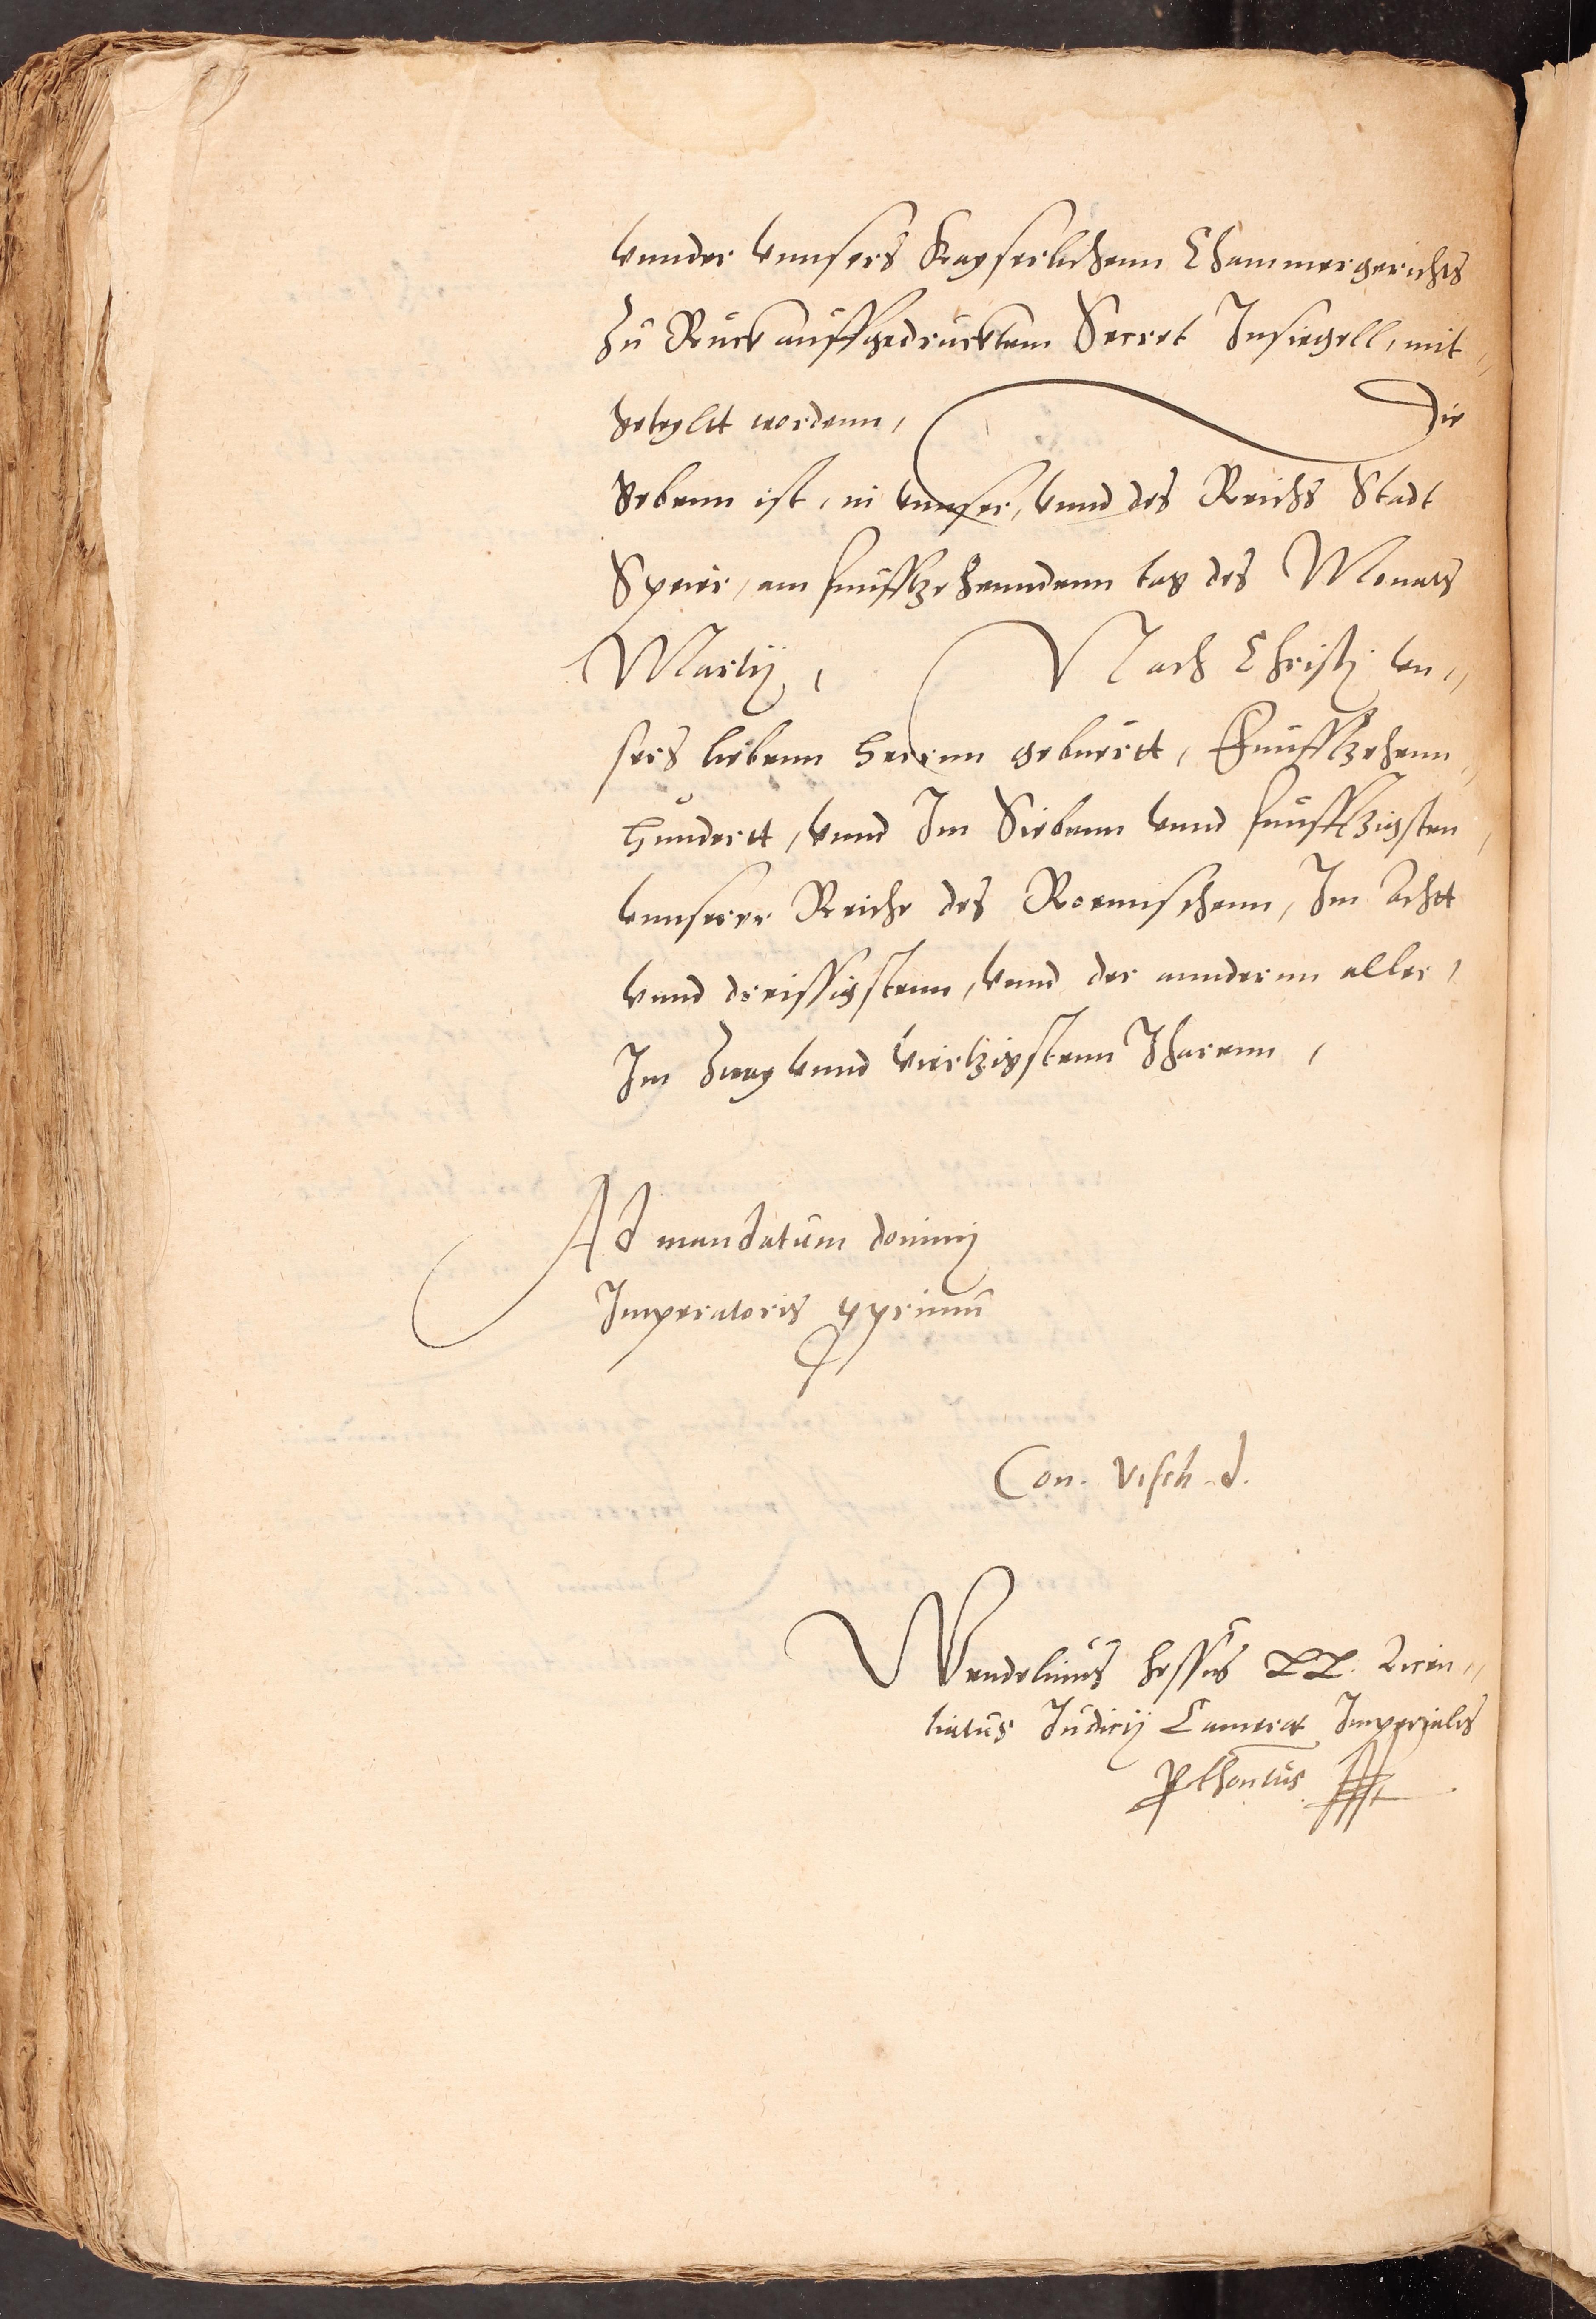 vnnder vnnsers Kayserlichenn Chammergerichts
zu Ruck auffgedrucktem Secret Insiegell, mit,
geteyltt wordenn, Die
Gebenn ist, in vnnser, vnnd des Reichs Stadt
Speier, am funfftzehenndenn tag des Monats
Martij, Nach Christj vn,,
sers liebenn herrnn geburtt, Funfftzehenn,
hundertt, vnnd Im Siebenn vnnd funfftzigsten,
vnnserer Reiche des Roemischenn, Im Acht
vnnd dreissigstenn, vnnd der anndernn aller,
Im Zway vnnd viertzigstenn Jharenn,
Ad mandatum dominj
Imperatoris pprium
Con. Visch. d.
Wendelinus hessus LL. Licen,,
tiatus Judicij Camerae Imperialis
Prothontus